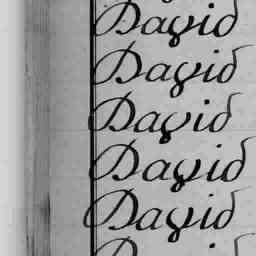 David
David
David
David
David
D